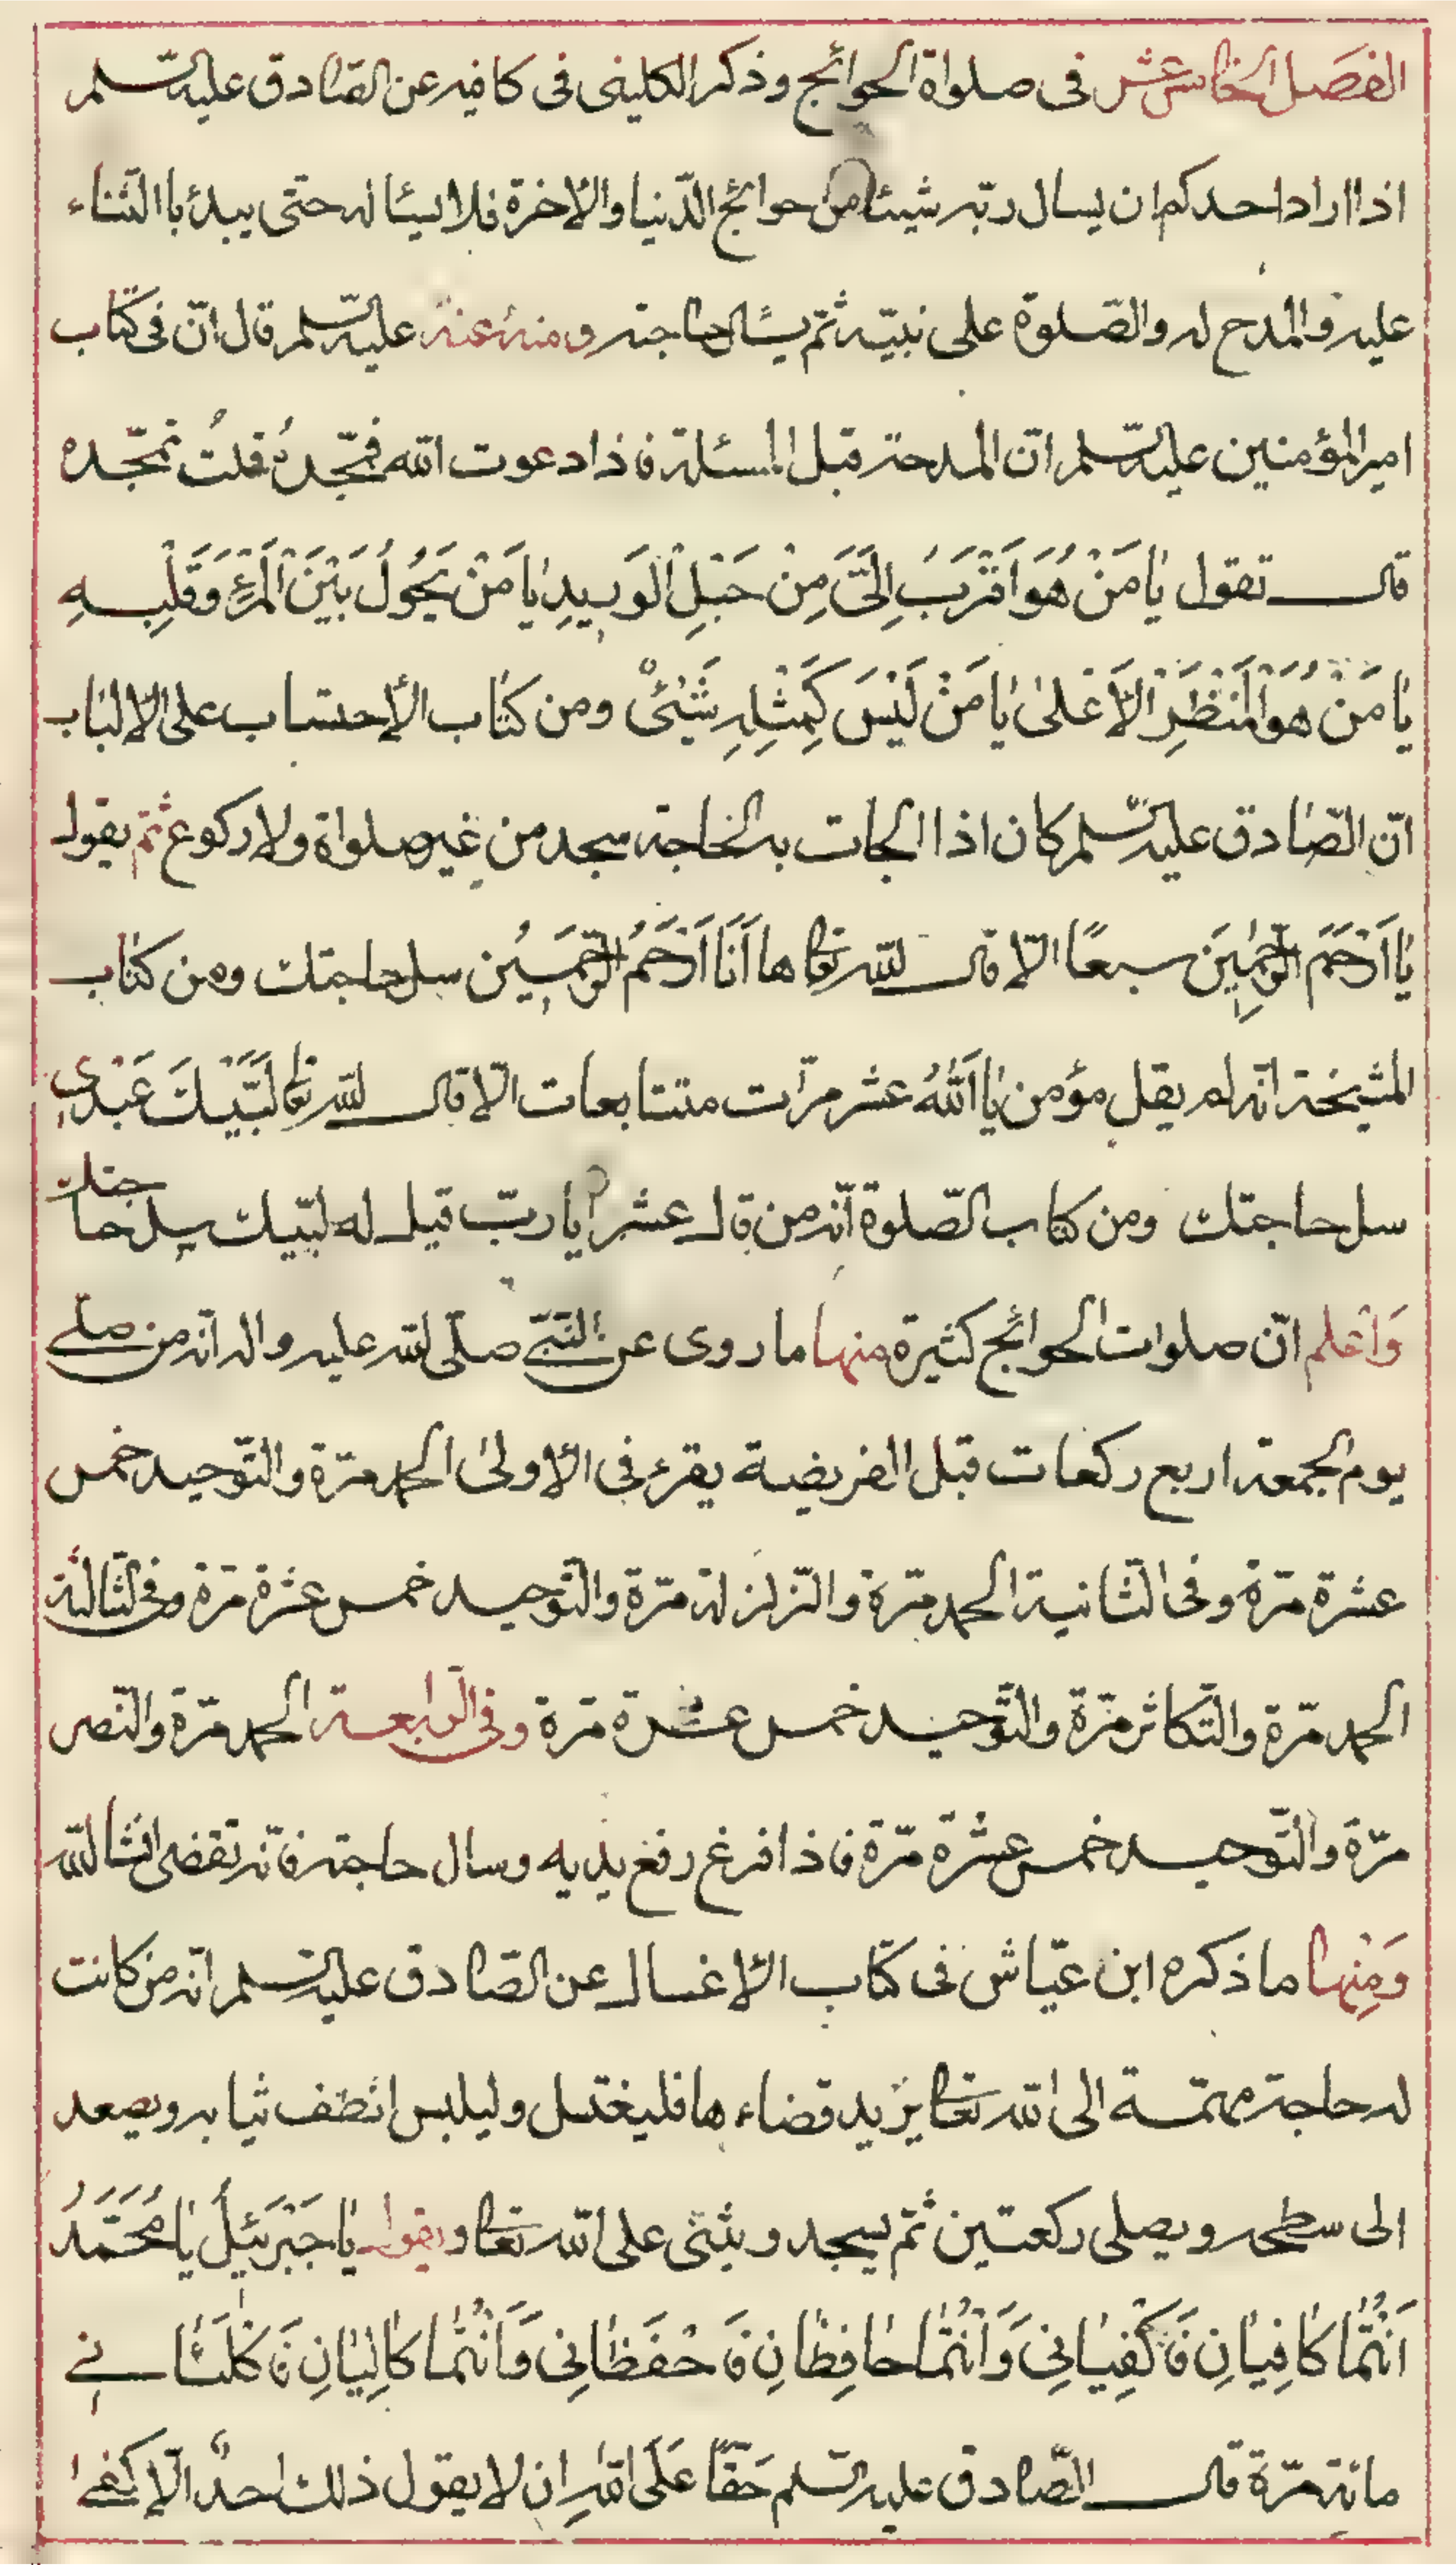 الفصل الخامس عشر فى صلواة الحوائج وذكر الكلينى فى كافيه عن الصادق عليه السلم
اذا اراد احدكم ان يسال ربّه شيئا من حوائج الدّنيا والاخرة فلا يسئاله حتى يبدئ باالثناء
عليه والمدح له والصّلوة على نبيّه ثمّ يسئال حاجته ومنه عنه عليه السّلم قال انّ فى كتاب
امير المؤمنين عليه السّلم انّ المدحة قبل المسئلة فاذا دعوت الله فمجّدهُ قلتُ نمجّده
قال تقول يَا مَنْ هُوَ اَقْرَبُ اِلَىَّ مِنْ حَبْلِ الْوَرِيدِ يَا مَنْ يَحُولُ بَيْنَ الْمَرْءِ وَقَلْبِهِ
يَا مَنْ هُوَ بِالْمَنْظَرِ الْاَعْلىٰ يَا مَنْ لَيْسَ كَمِثْلِهِ شَيْئٌ ومن كتاب الأحتساب على الالباب
انّ الصّادق عليه السّلم كان اذا الجات به الحاجة سجد من غير صلواة ولا ركوع ثمّ يقول
يَا اَرْحَمَ الرّٰحِمِينَ سبعًا الّا قال الله تعا ها اَنَا اَرْحَمُ الرّٰحِمِينَ سل حاجتك ومن كتاب
المشيخة انه لم يقل مؤمن يَا اَللهُ عشر مرّات متتابعات الّا قال الله تعا لَبَّيْكَ عَبْدِى
سل حاجتك ومن كتاب الصّلوة انّه من قال عشرا يا ربّ قيل له لبّيك سل حاجتك
وَاعْلم انّ صلوات الحوائج كثيرة منها ما روى عن النّبىّ صلّى الله عليه واله انه من صلى
يوم الجمعة اربع ركعات قبل الفريضة يقرء فى الاولىٰ الحمد مرّة والتّوحيد خمس
عشرة مرّة وفى الثانية الحمد مرّة والزّلزلة مرّة والتّوحيد خمس عشرة مرّة وفى الثالثة
الحمد مرّة والتّكاثر مرّة والتّوحيد خمس عشرة مرّة وفى الرابعة الحمد مرّة والنّصر
مرّة والتّوحيد خمس عشرة مرّة فاذا فرغ رفع يديه وسال حاجته فانّه تقضى انشا الله
وَمِنْها ما ذكره ابن عيّاش فى كتاب الاغسال عن الصّادق عليه السّلم انه من كانت
له حاجة مهمّة الى الله تعا يريد قضاءها فليغتسل وليلبس انظف ثيابه ويصعد
الى سطحه ويصلى ركعتين ثمّ يسجد ويثنى على الله تعا ويقول يَا جَبْرَئيلُ يَا مُحَمَّدُ
اَنْتُمَا كَافِيَانِ فَاكْفِيَانِى وَاَنْتُمَا حَافِظَانِ فَاحْفَظَانِى وَاَنْتُمَا كَالِيَانِ فَاكْلَئَانِى
مائة مرّة قال الصّادق عليه السّلم حَقًّا عَلَى اللهِ ان لا يقول ذلك احدٌ الّا كفى